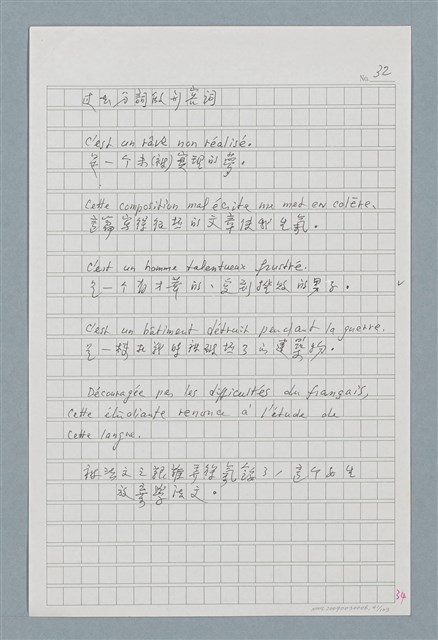 No. 32
过去分詞做形容词
C'est un rêve non réalisé.
是一个未(被)實現的夢。
Cette composition mal écrite me met en colère.
這篇寫得很坏的文章使我生氣。
C'est un homme talentueux frustré.
是一个有才華的、受到挫敗的男子。
C'est un bâtiment détruit pendant la guerre.
是一棟在戰時被破坏了的建築物。
Découragée par les difficultés du français,
cette étudiante renonce à l'étude de
cette langue.
被法文之艱難弄得氣餒了，這个女生
放棄學法文。
34